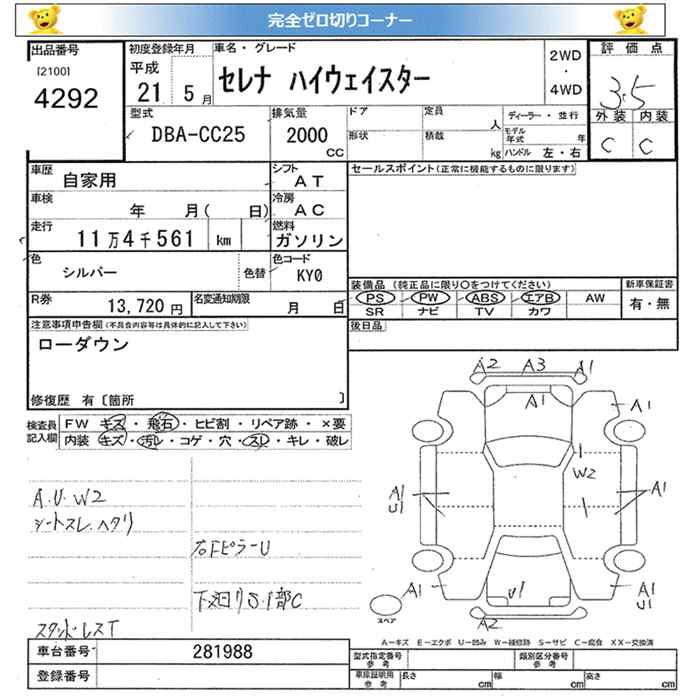 完全ゼロ切りコーナー
出品番号
[2100]
4292
初度登録年月
平成
21 5月
車名・グレード
セレナ ハイウェイスター
2WD
・
4WD
評価点
3.5
外装 内装
C C
型式
DBA-CC25
排気量
2000
CC
ドア
形状
定員
人
積載
kg
ディーラー・並行
モデル年式 年
ハンドル 左・右
車歴
自家用
シフト
AT
車検
年 月( 日)
冷房
AC
走行
11万4千561 km
燃料
ガソリン
色
シルバー
色替
色コード
KY0
R券
13,720円
名変通知期限
月 日
セールスポイント(正常に機能するものに限ります)
装備品(純正品に限り○をつけてください)
PS PW ABS エアB AW
SR ナビ TV カワ
新車保証書
有・無
後日品
注意事項申告欄(不具合内容等は具体的に記入して下さい)
ローダウン
修復歴 有〔箇所 〕
検査員記入欄
FW キズ・飛石・ヒビ割・リペア跡・×要
内装 キズ・汚レ・コゲ・穴・スレ・キレ・破レ
A.U.W2
シートスレ.ヘタリ
右FピラーU
下廻りS.1部C
スタッドレスT
A2 A3 A1
A1
A1
W2
A1
U1
A1
A1
U1
A1
U1
A2
スペア
A-キズ E-エクボ U-凹み W-補修跡 S-サビ C-腐食 XX-交換済
車台番号
281988
登録番号
型式指定番号
参考
類別区分番号
参考
車庫証明用
参考
長さ cm
幅 cm
高さ cm